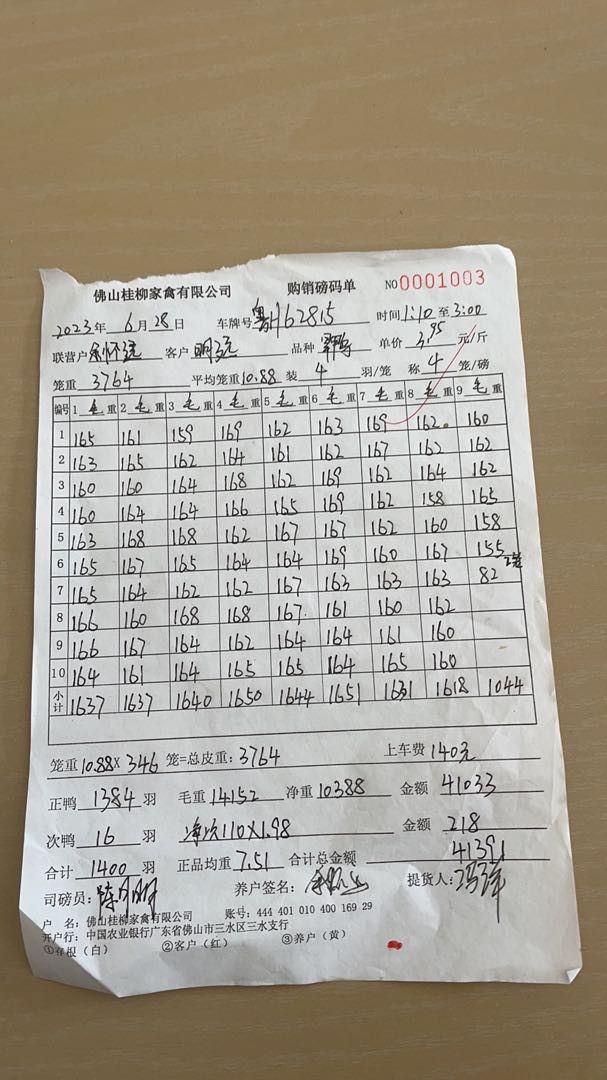 佛山桂柳家禽有限公司 购销磅码单 NO 0001003
2023年 6月 28日 车牌号 粤H62815 时间 1:10 至 3:00
联营户 客户 明统 品种 单价 3.95 元/斤
笼重 3764 平均笼重 10.88 装 4 羽/笼 称 4 笼/磅
编号 1 毛重 2 毛重 3 毛重 4 毛重 5 毛重 6 毛重 7 毛重 8 毛重 9 重
1 165 161 159 169 162 163 169 162 160
2 163 165 162 164 161 162 167 162 162
3 160 160 164 168 162 169 162 164 162
4 160 164 164 166 165 169 162 158 165
5 163 168 168 162 167 167 162 160 158
6 165 167 165 164 164 169 160 167 155
7 165 164 162 162 167 163 163 163 82 2笼
8 166 160 168 168 167 161 160 162
9 166 167 164 162 164 164 161 160
10 164 161 164 165 165 164 165 160
小计 1637 1637 1640 1650 1644 1651 1631 1618 1044
笼重 10.88 X 346 笼=总皮重: 3764 上车费 140元
正鸭 1384 羽 毛重 14152 净重 10388 金额 41033
次鸭 16 羽 净次110X1.98 金额 218
合计 1400 羽 正品均重 7.51 合计总金额 41391
司磅员: 养户签名: 提货人:
户 名: 佛山桂柳家禽有限公司 账号: 444 401 010 400 169 29
开户行: 中国农业银行广东省佛山市三水区三水支行
①存根(白) ②客户(红) ③养户(黄)